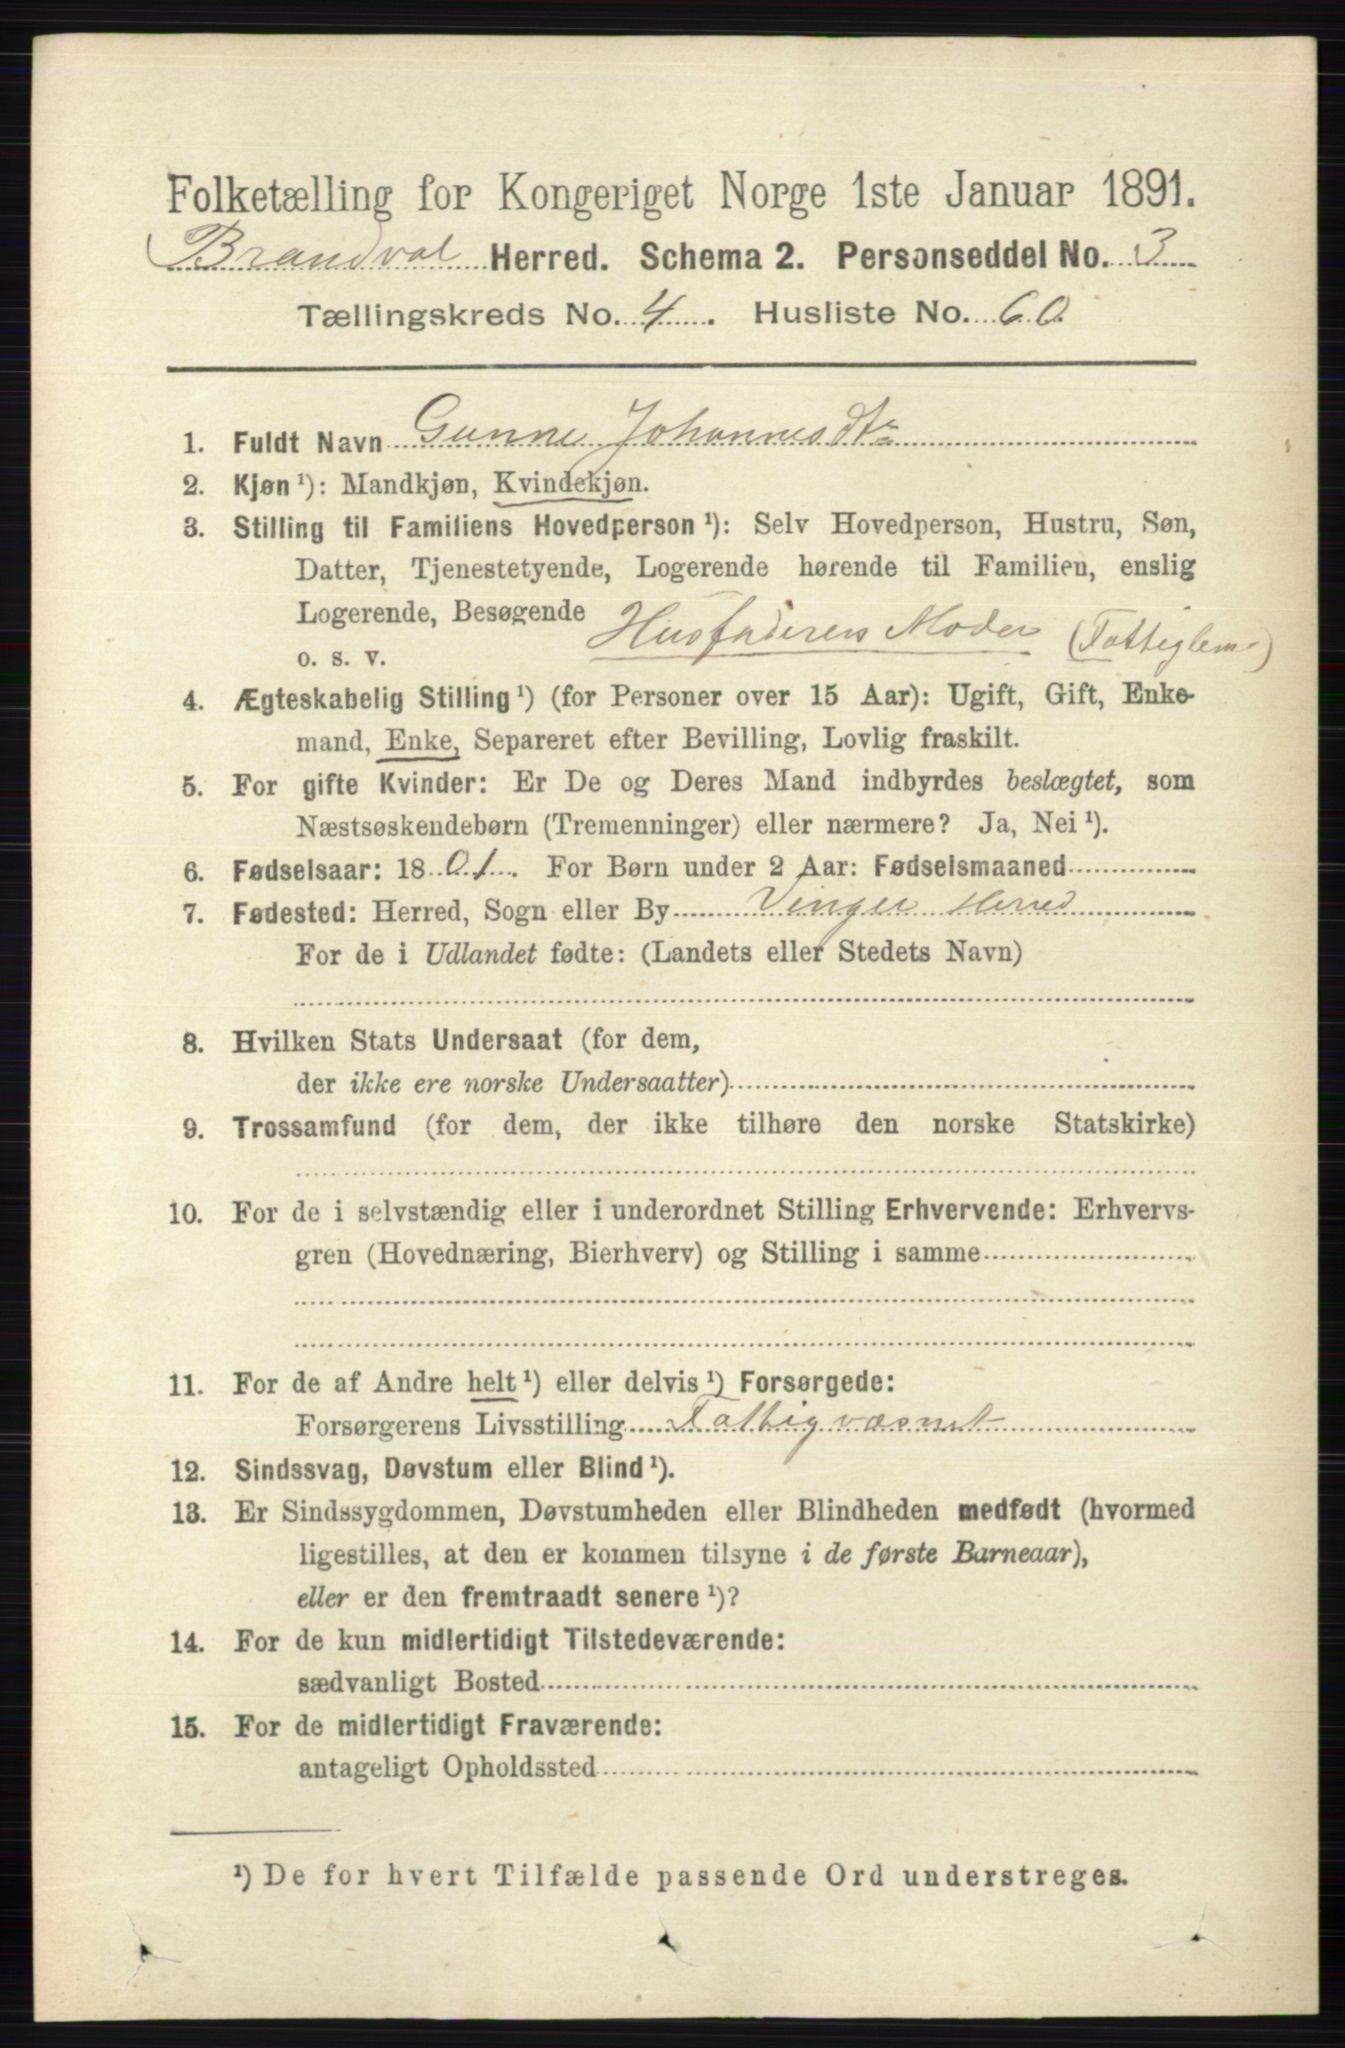 Folketælling for Kongeriget Norge 1ste Januar 1891.
Brandvol Herred. Schema 2. Personseddel No. 3
Tællingskreds No. 4. Husliste No. 60
1. Fuldt Navn Gunne Johannesdtr
2. Kjøn ¹): Mandkjøn, Kvindekjøn.
3. Stilling til Familiens Hovedperson ¹): Selv Hovedperson, Hustru, Søn,
Datter, Tjenestetyende, Logerende hørende til Familien, enslig
Logerende, Besøgende
o. s. v. Husfaderens Moder (Fattiglem)
4. Ægteskabelig Stilling ¹) (for Personer over 15 Aar): Ugift, Gift, Enke-
mand, Enke, Separeret efter Bevilling, Lovlig fraskilt.
5. For gifte Kvinder: Er De og Deres Mand indbyrdes beslægtet, som
Næstsøskendebørn (Tremenninger) eller nærmere? Ja, Nei ¹).
6. Fødselsaar: 1801. For Børn under 2 Aar: Fødselsmaaned
7. Fødested: Herred, Sogn eller By Vinger Herred
For de i Udlandet fødte: (Landets eller Stedets Navn)
8. Hvilken Stats Undersaat (for dem,
der ikke ere norske Undersaatter)
9. Trossamfund (for dem, der ikke tilhøre den norske Statskirke)
10. For de i selvstændig eller i underordnet Stilling Erhvervende: Erhvervs-
gren (Hovednæring, Bierhverv) og Stilling i samme
11. For de af Andre helt ¹) eller delvis ¹) Forsørgede:
Forsørgerens Livsstilling Fattigvæsnet
12. Sindssvag, Døvstum eller Blind ¹).
13. Er Sindssygdommen, Døvstumheden eller Blindheden medfødt (hvormed
ligestilles, at den er kommen tilsyne i de første Barneaar),
eller er den fremtraadt senere ¹)?
14. For de kun midlertidigt Tilstedeværende:
sædvanligt Bosted
15. For de midlertidigt Fraværende:
antageligt Opholdssted
¹) De for hvert Tilfælde passende Ord understreges.